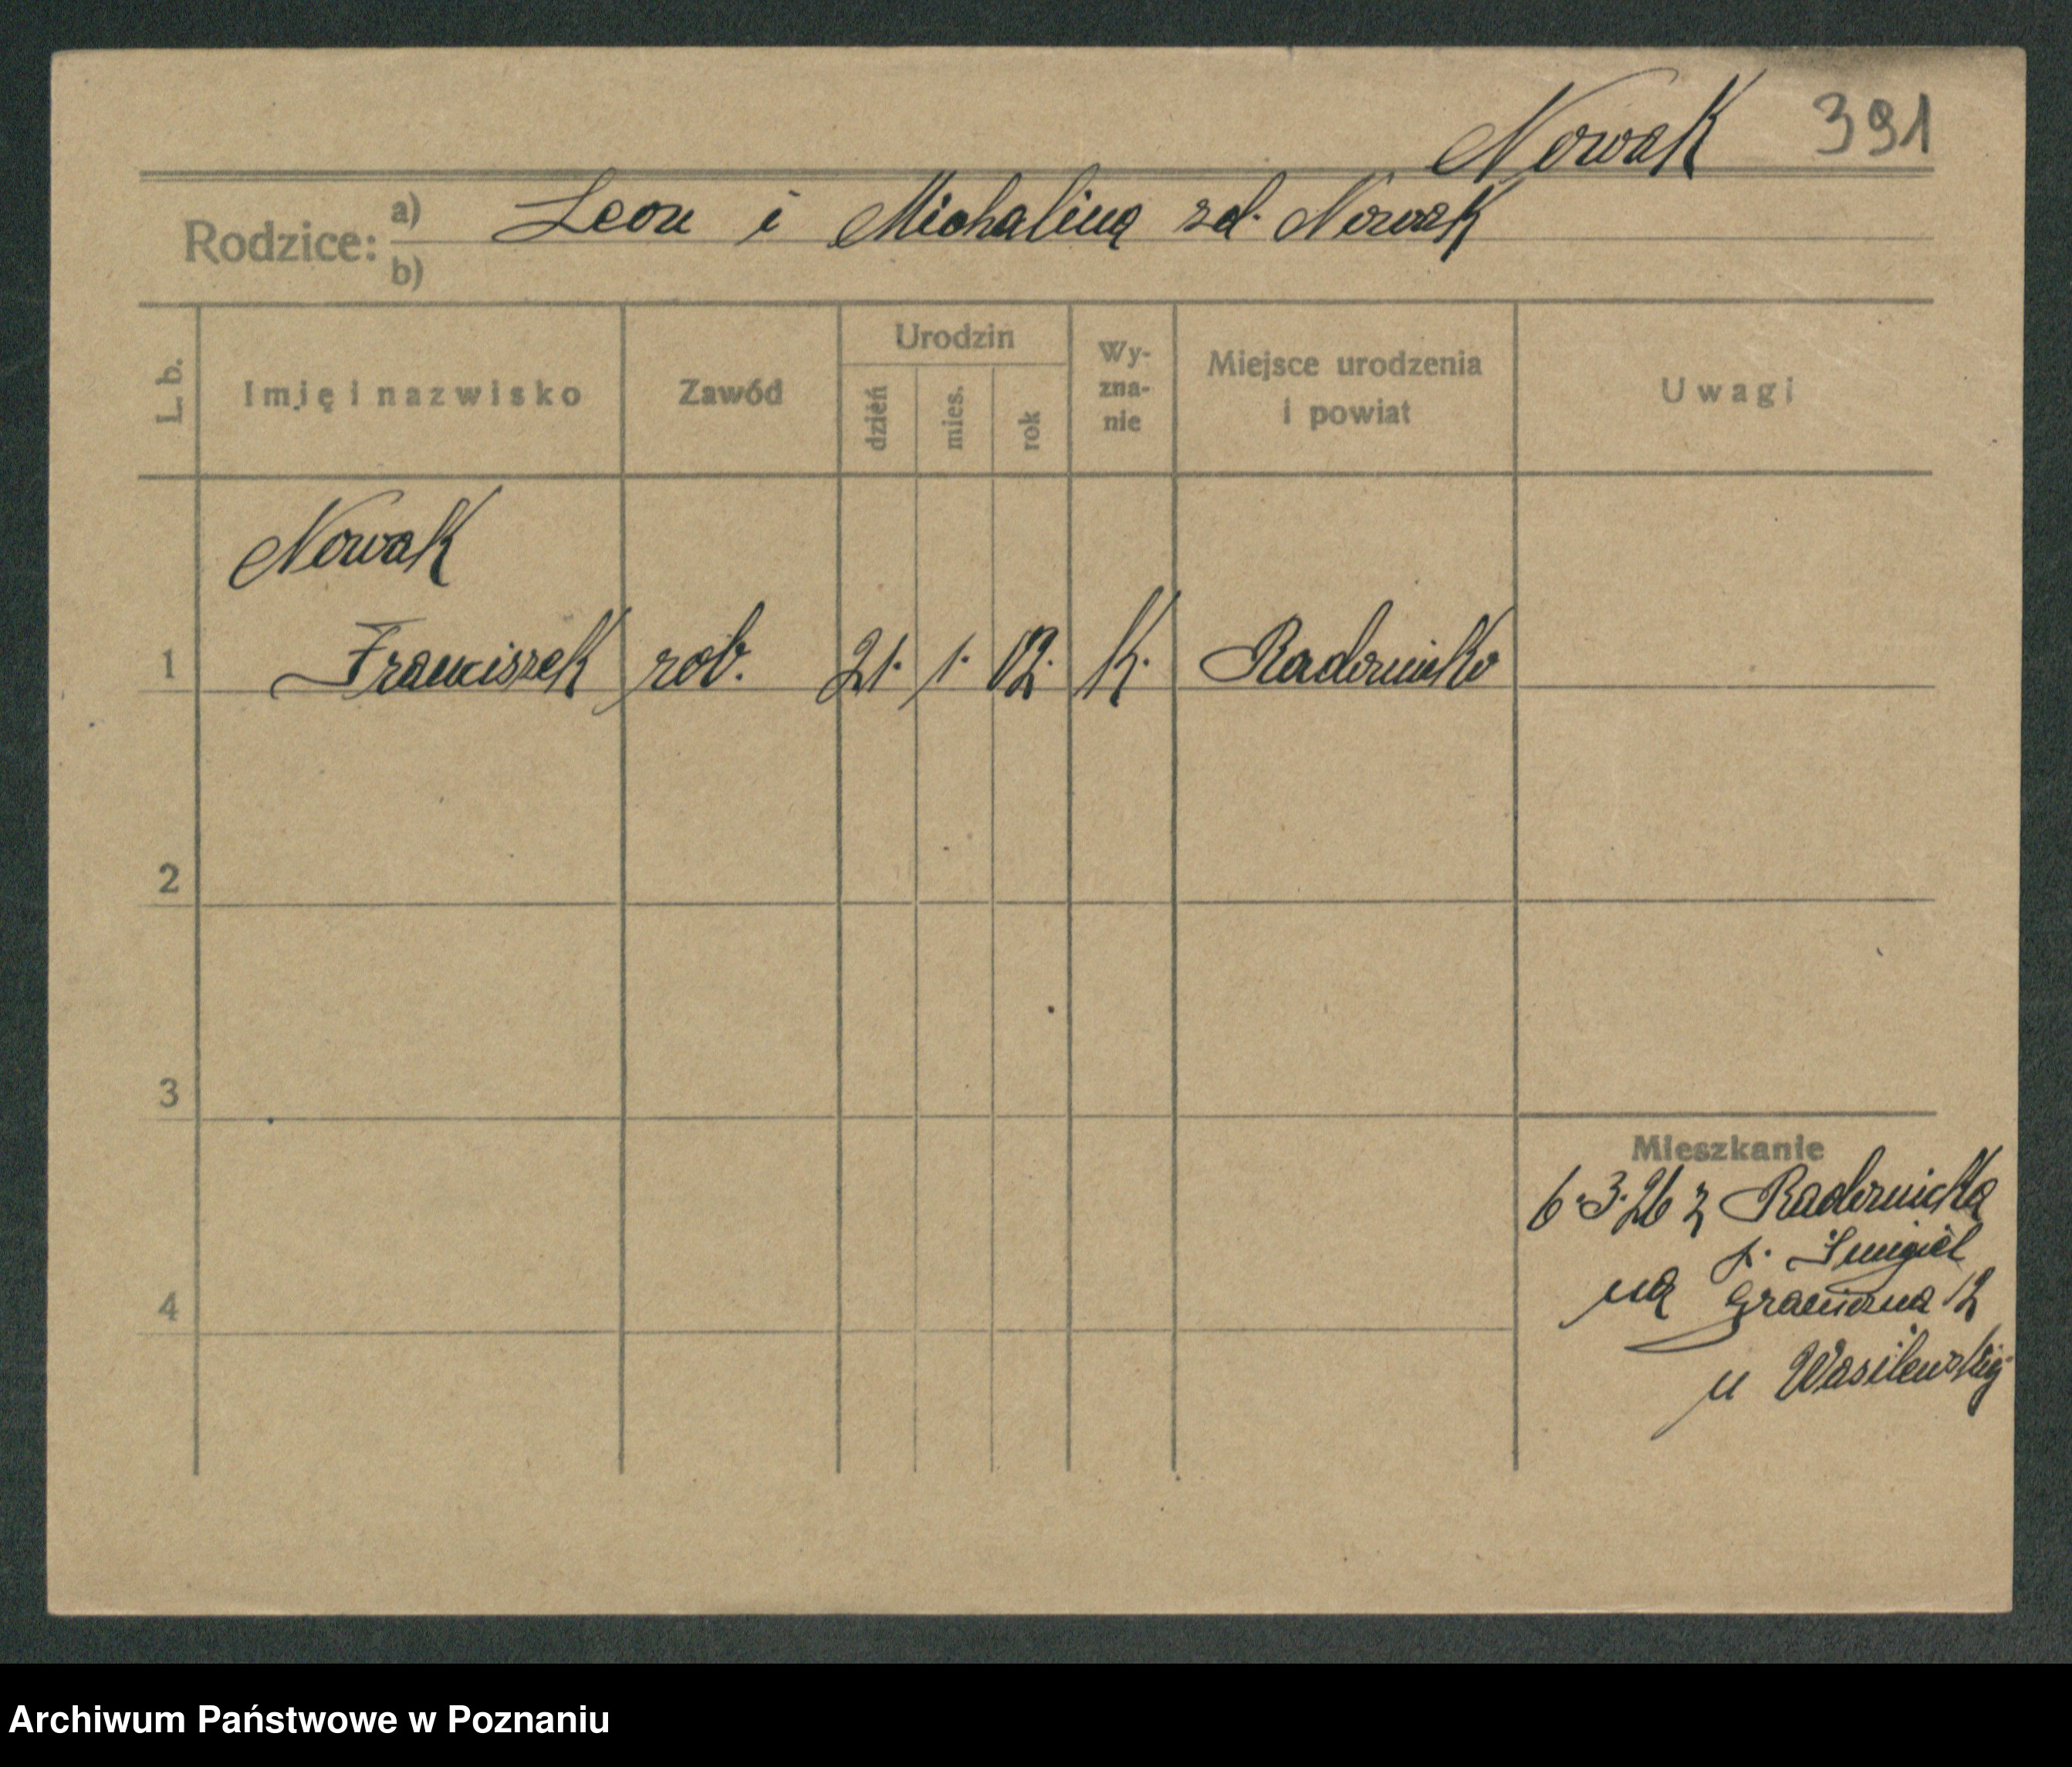 Nowak 391
Rodzice: a) Leon i Michalina zd. Nowak
b)
L. b. Imię i nazwisko Zawód Urodzin dzień mies. rok Wy-zna-nie Miejsce urodzenia i powiat Uwagi
Nowak
1 Franciszek rob. 21. 1. 02. K. Radomicko
2
3
Mieszkanie
6.3.26 z Radomicka
p. Śmigiel
4 na Graniczna 12
u Wasilewskiej
Archiwum Państwowe w Poznaniu